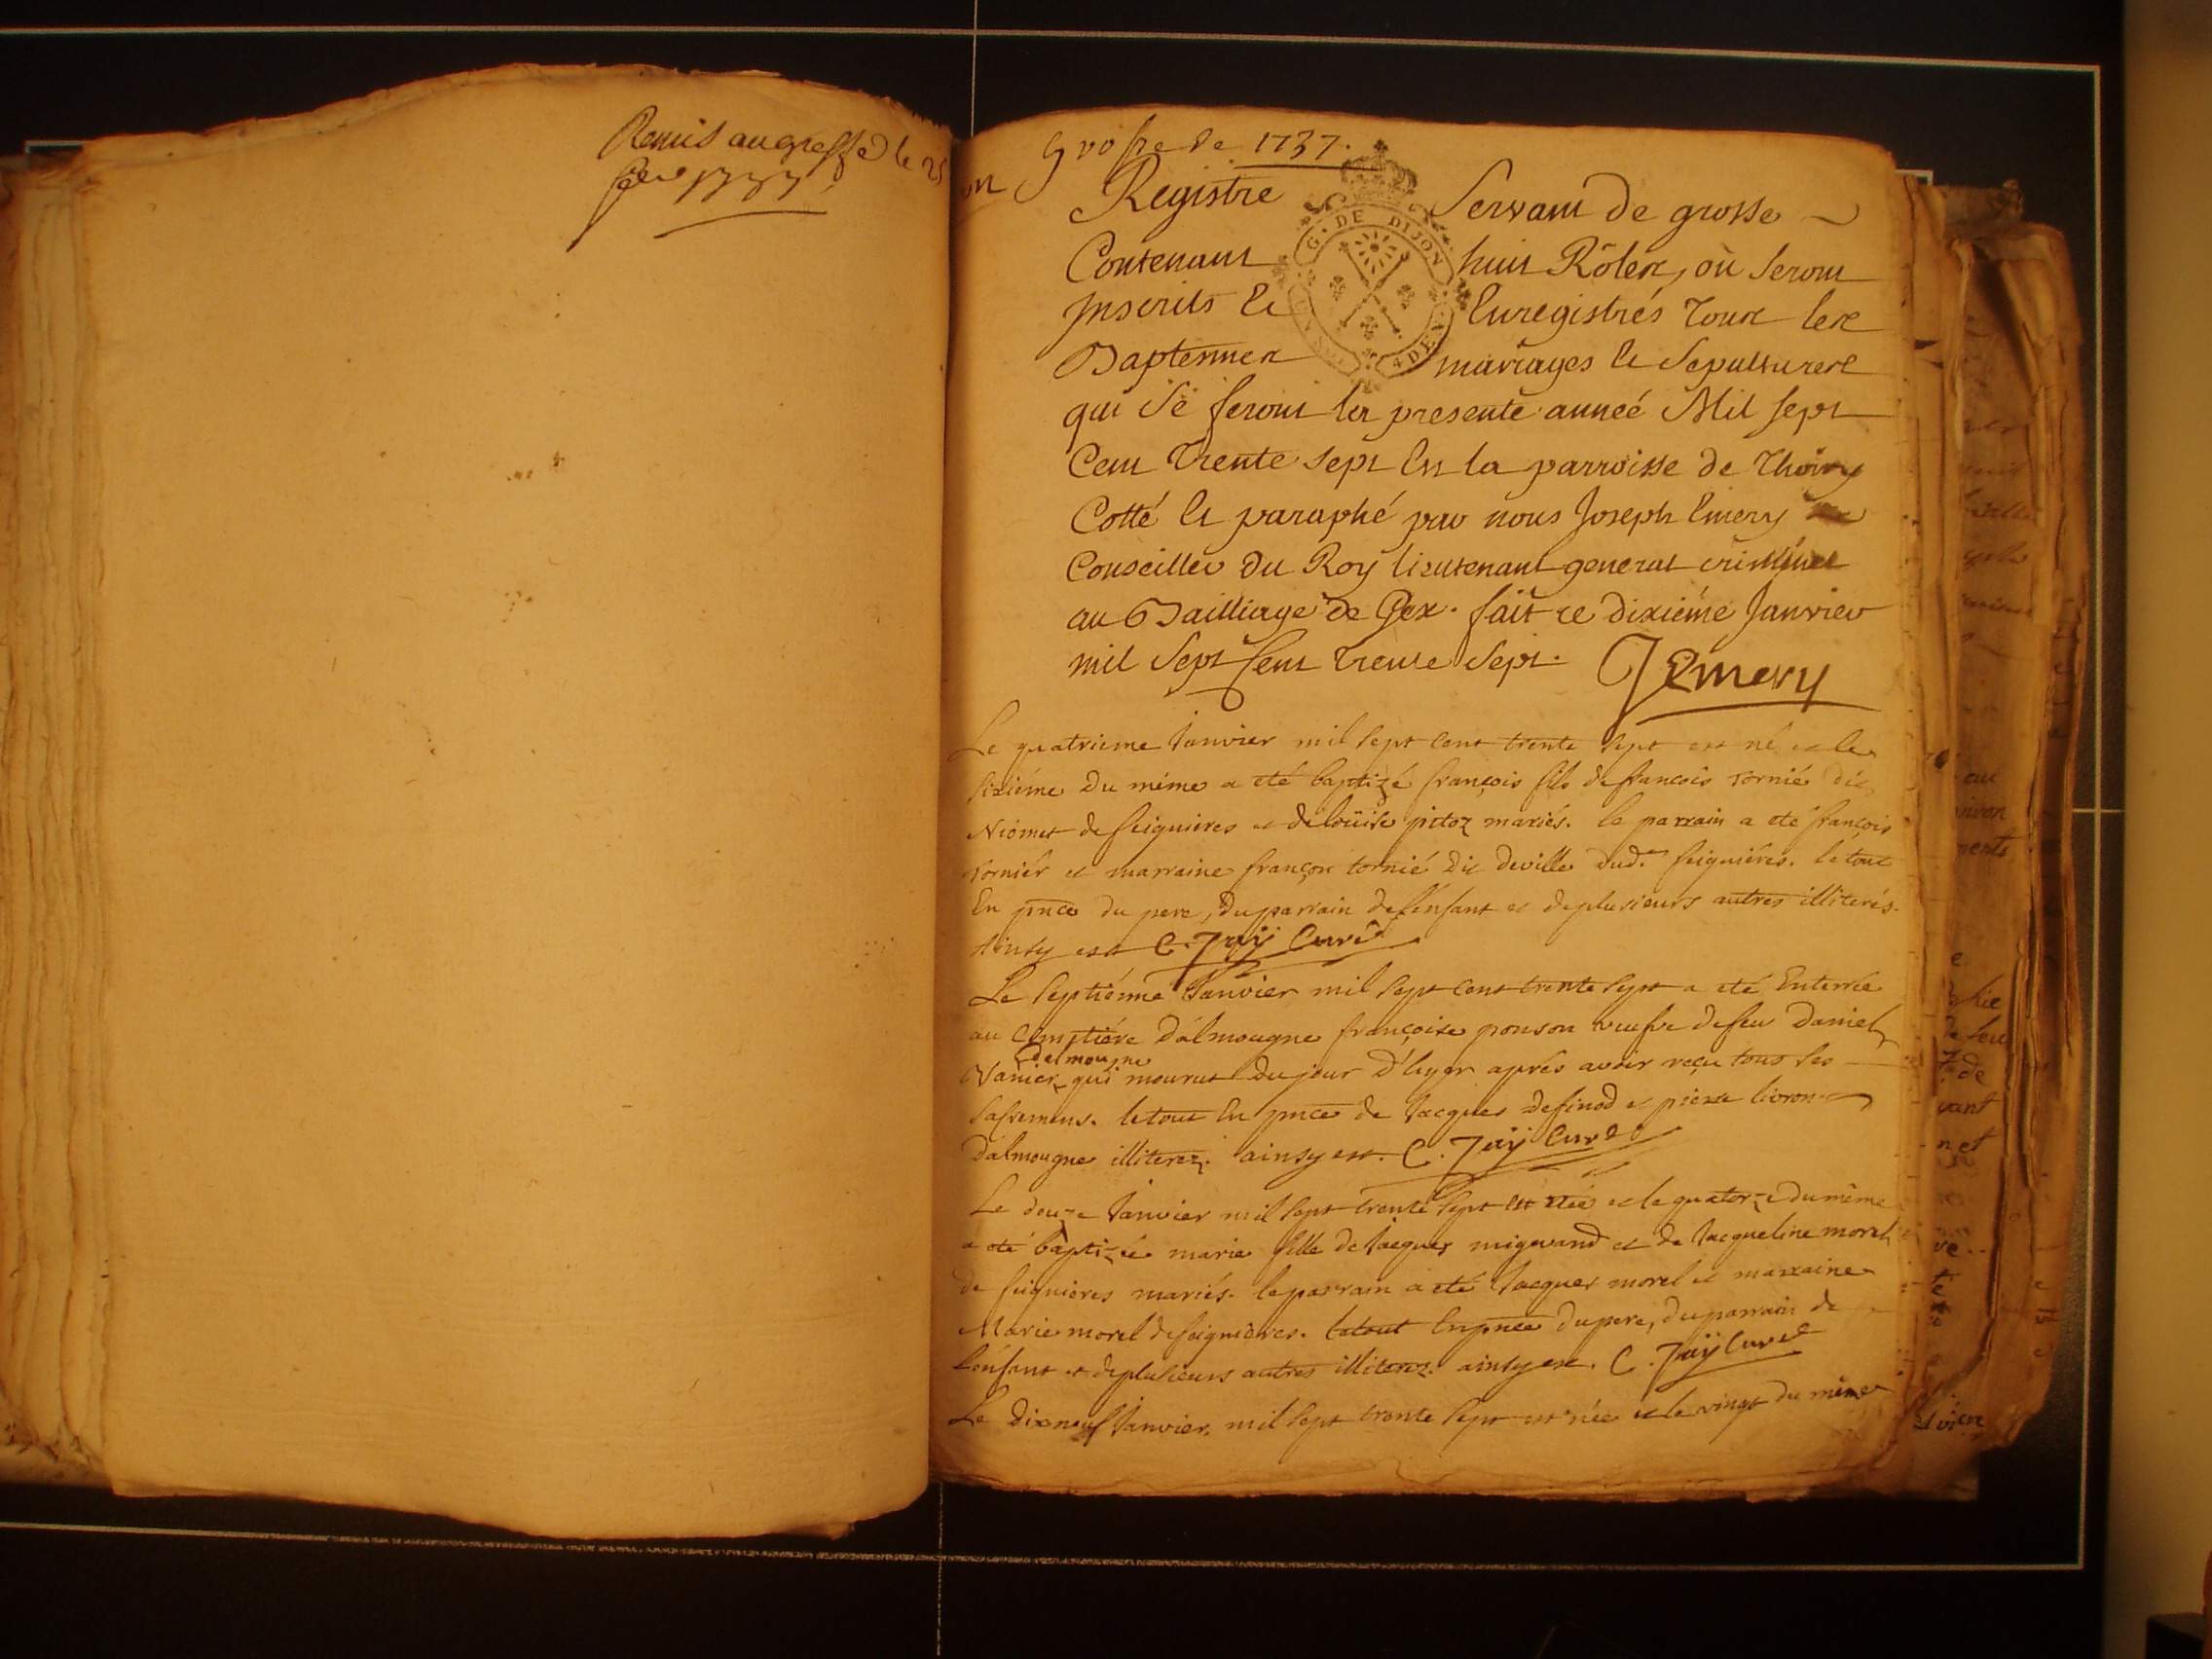 Remis au greffe le 25
febr 1737
Grosse de 1737.
Registre Servant de grosse
G. DE DIJON
Contenant huit Rôles, où Seront
Inscrits et Enregistrés Tous les
Baptesmes mariages et Sepultures
qui Se feront la presente année Mil sept
Cent Trente sept En la parroisse de Thoiry
Cotté et paraphé par nous Joseph Emery
Conseiller du Roy lieutenant general criminel
au Bailliage de Gex. fait ce dixiéme Janvier
mil Sept Cent Trente Sept. JEmery
Le quatrieme Janvier mil sept cent trente sept est né et le
sixiéme du même a eté baptizé françois fils de francois tornié dit
Niomet de feigniéres et de loüise pitoz mariés. le parrain a eté françois
tornier et marraine françoise tornié dit deville dud. feigniéres. le tout
En pnce du pere, du parrain de l'enfant et de plusieurs autres illiterés.
Ainsy est C. Jaÿ Curé
Le septiéme Janvier mil sept cent trente sept a eté Enterrée
au Cimetiére d'almougne françoise ponson veufve de feu Daniel
Vanier dalmougne qui mourut du jour d'hyer aprés avoir reçu tous ses
sacremens. le tout En pnce de Jacques definod et pierre livron
d'almougne illiterez. ainsy est. C. Jaÿ Curé
Le douze Janvier mil sept trente sept est née et le quatorze du même
a eté baptizée marie fille de Jacques migerand et de Jacqueline morel
de feigniéres mariés. le parrain a eté Jacques morel et marraine
Marie morel de feigniéres. le tout En pnce du pere, du parrain de
l'enfant et de plusieurs autres illiterez. ainsy est. C. Jaÿ Curé
Le dixneuf Janvier, mil sept trente sept est née et le vingt du même